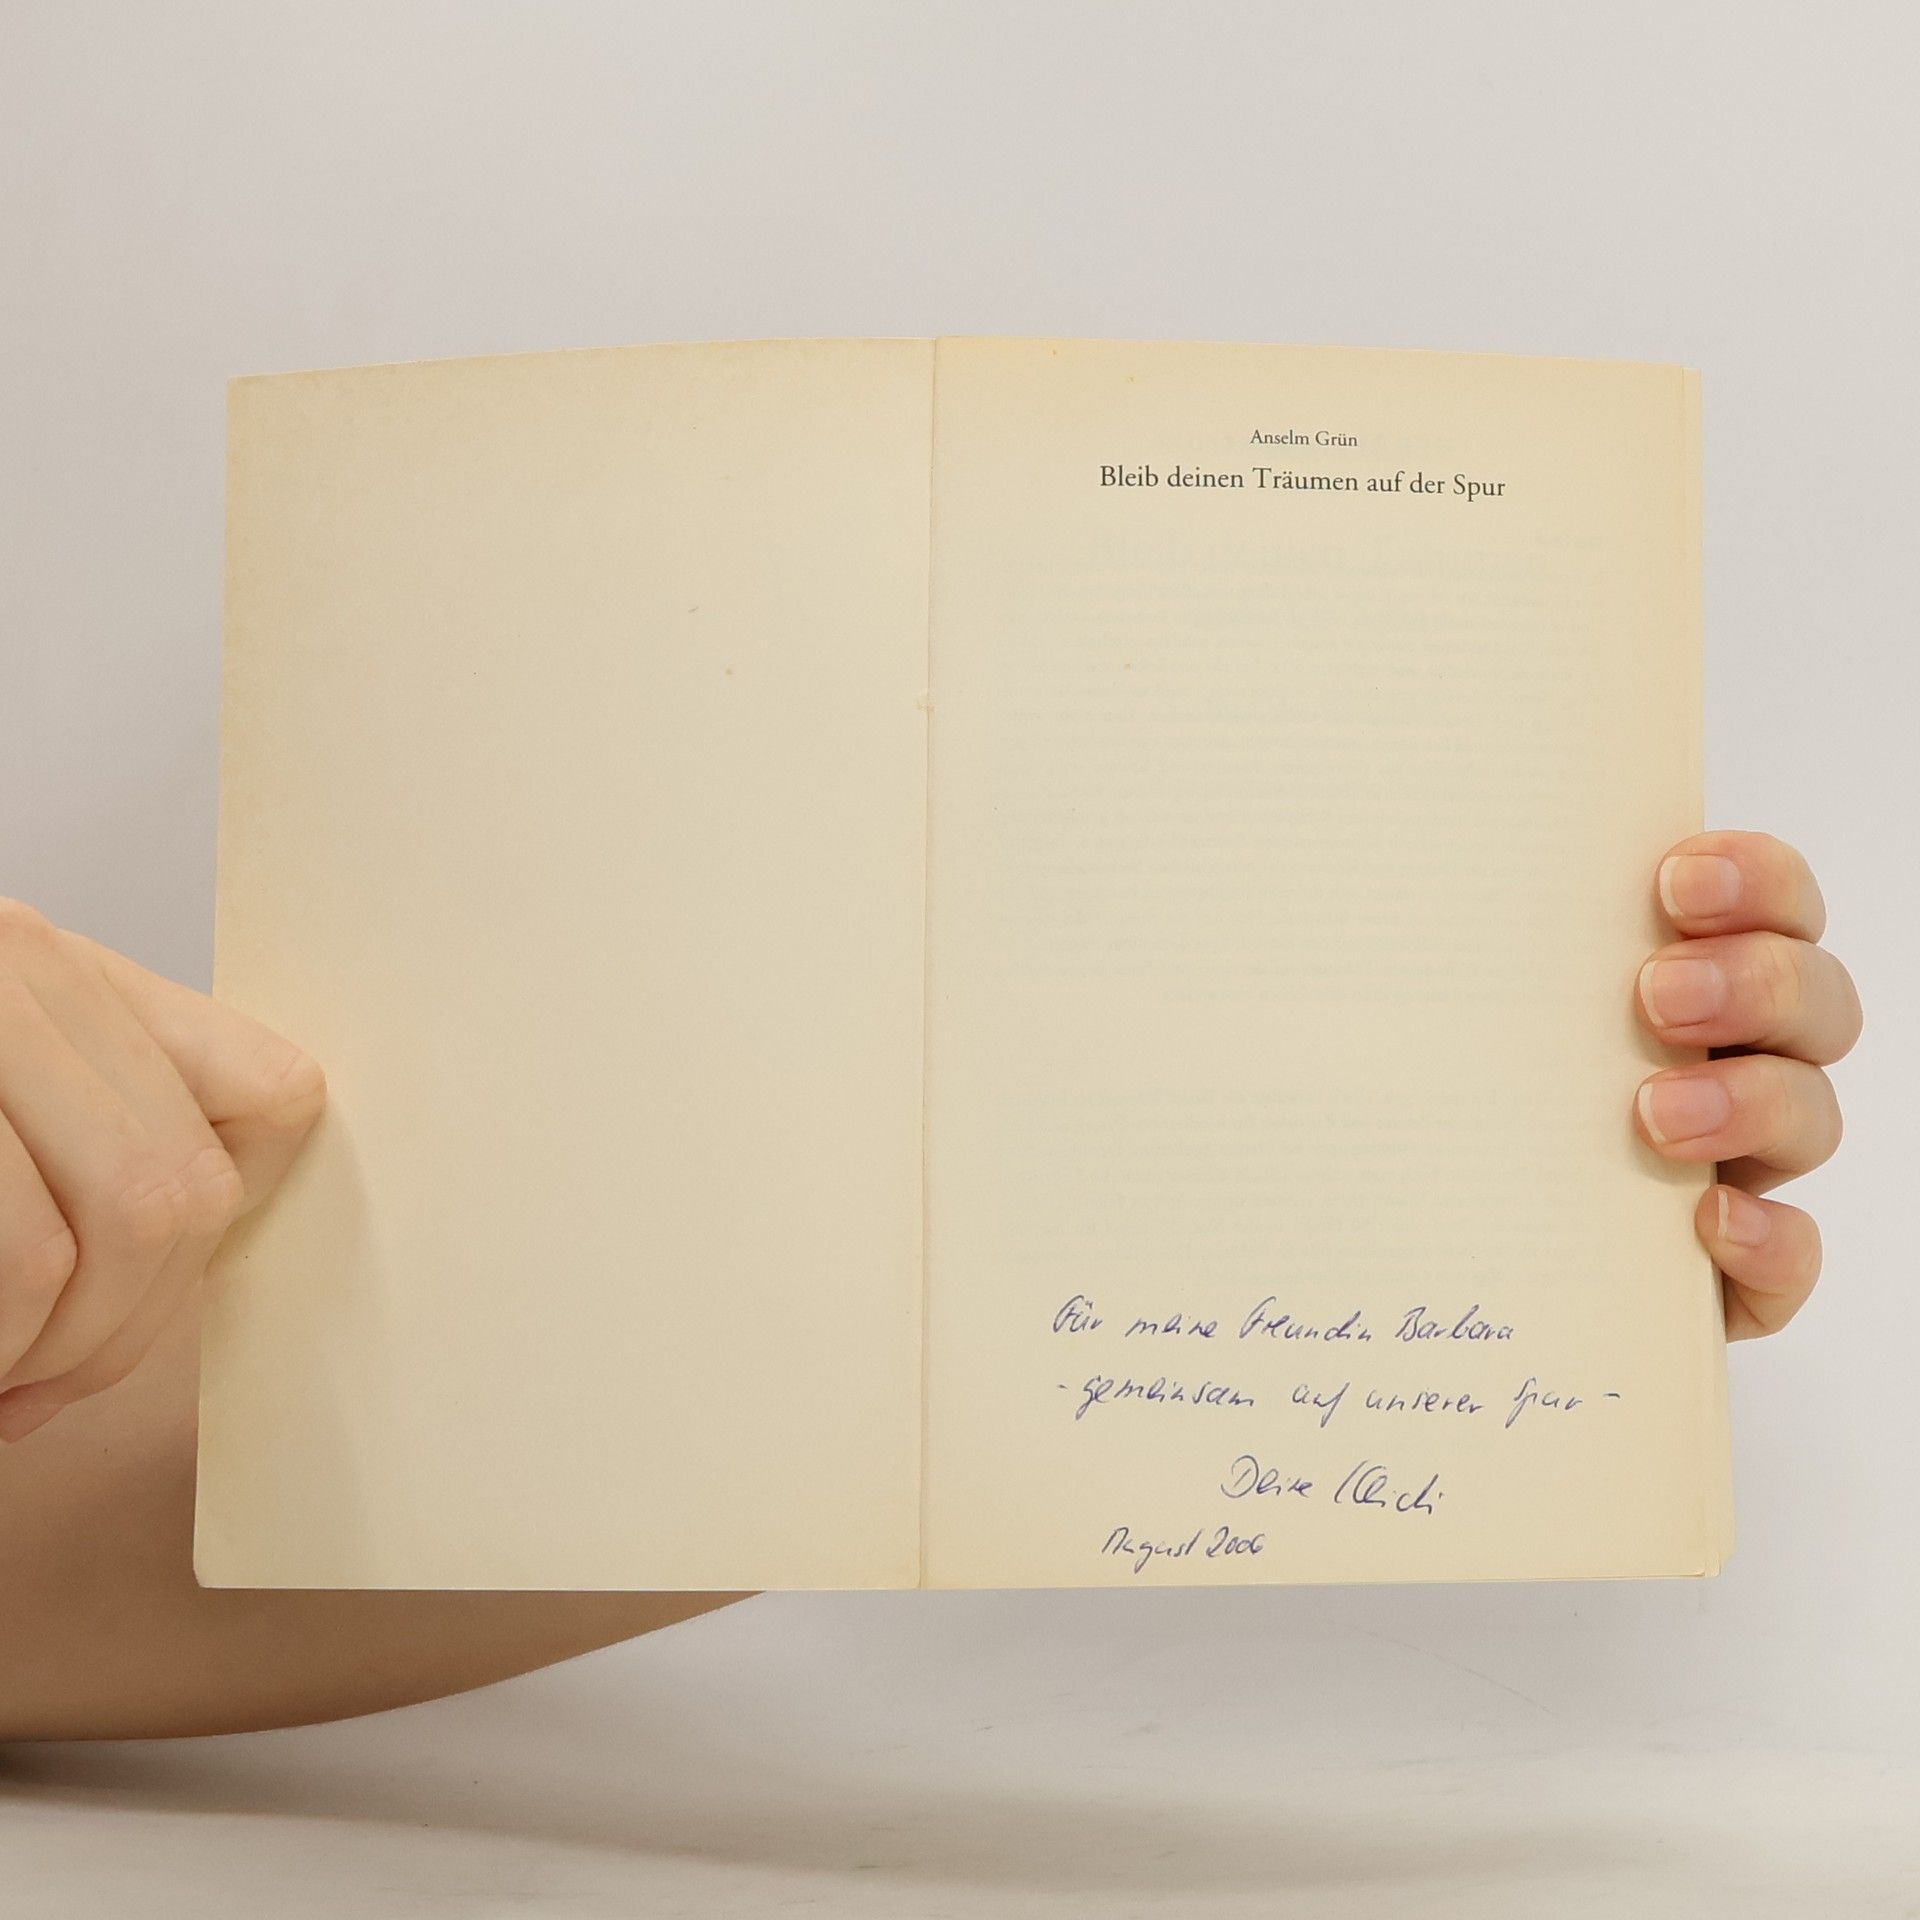 Anselm Grün
Bleib deinen Träumen auf der Spur
Für meine Freundin Barbara
- gemeinsam auf unserer Spur -
Deine
August 2006